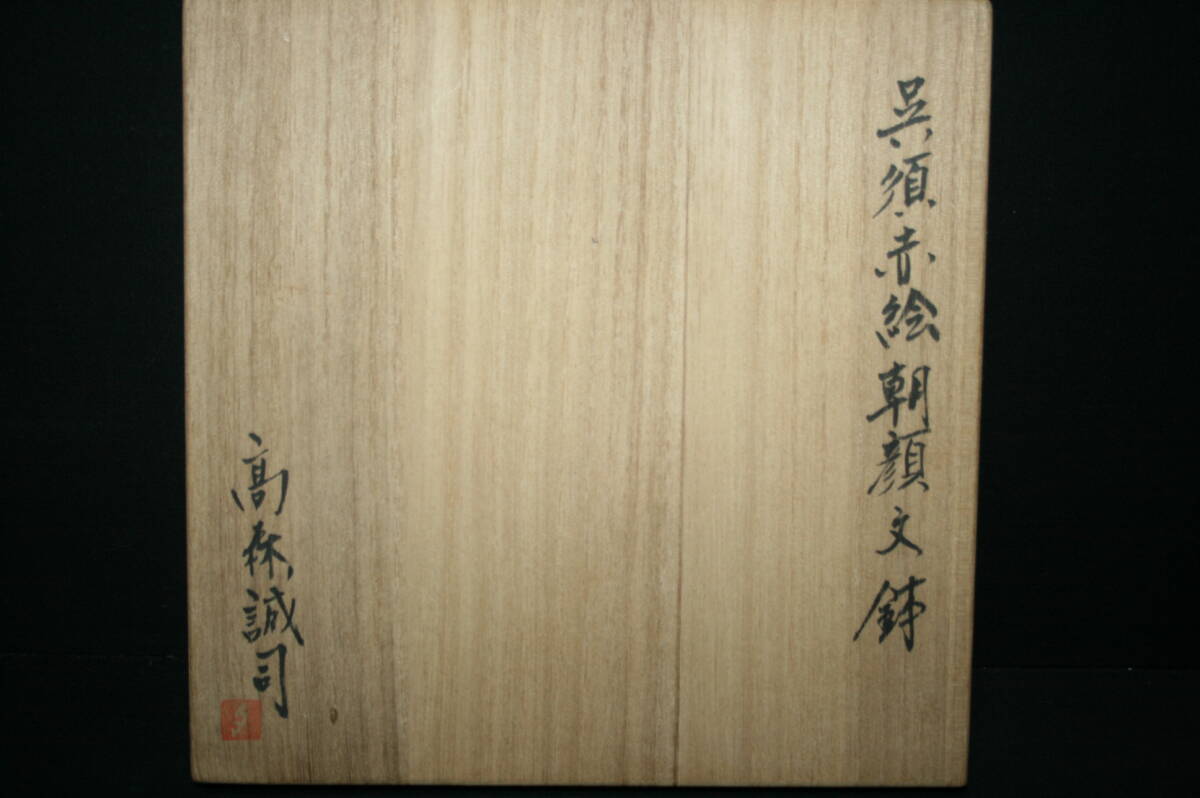 呉須赤絵朝顔文鉢
高森誠司